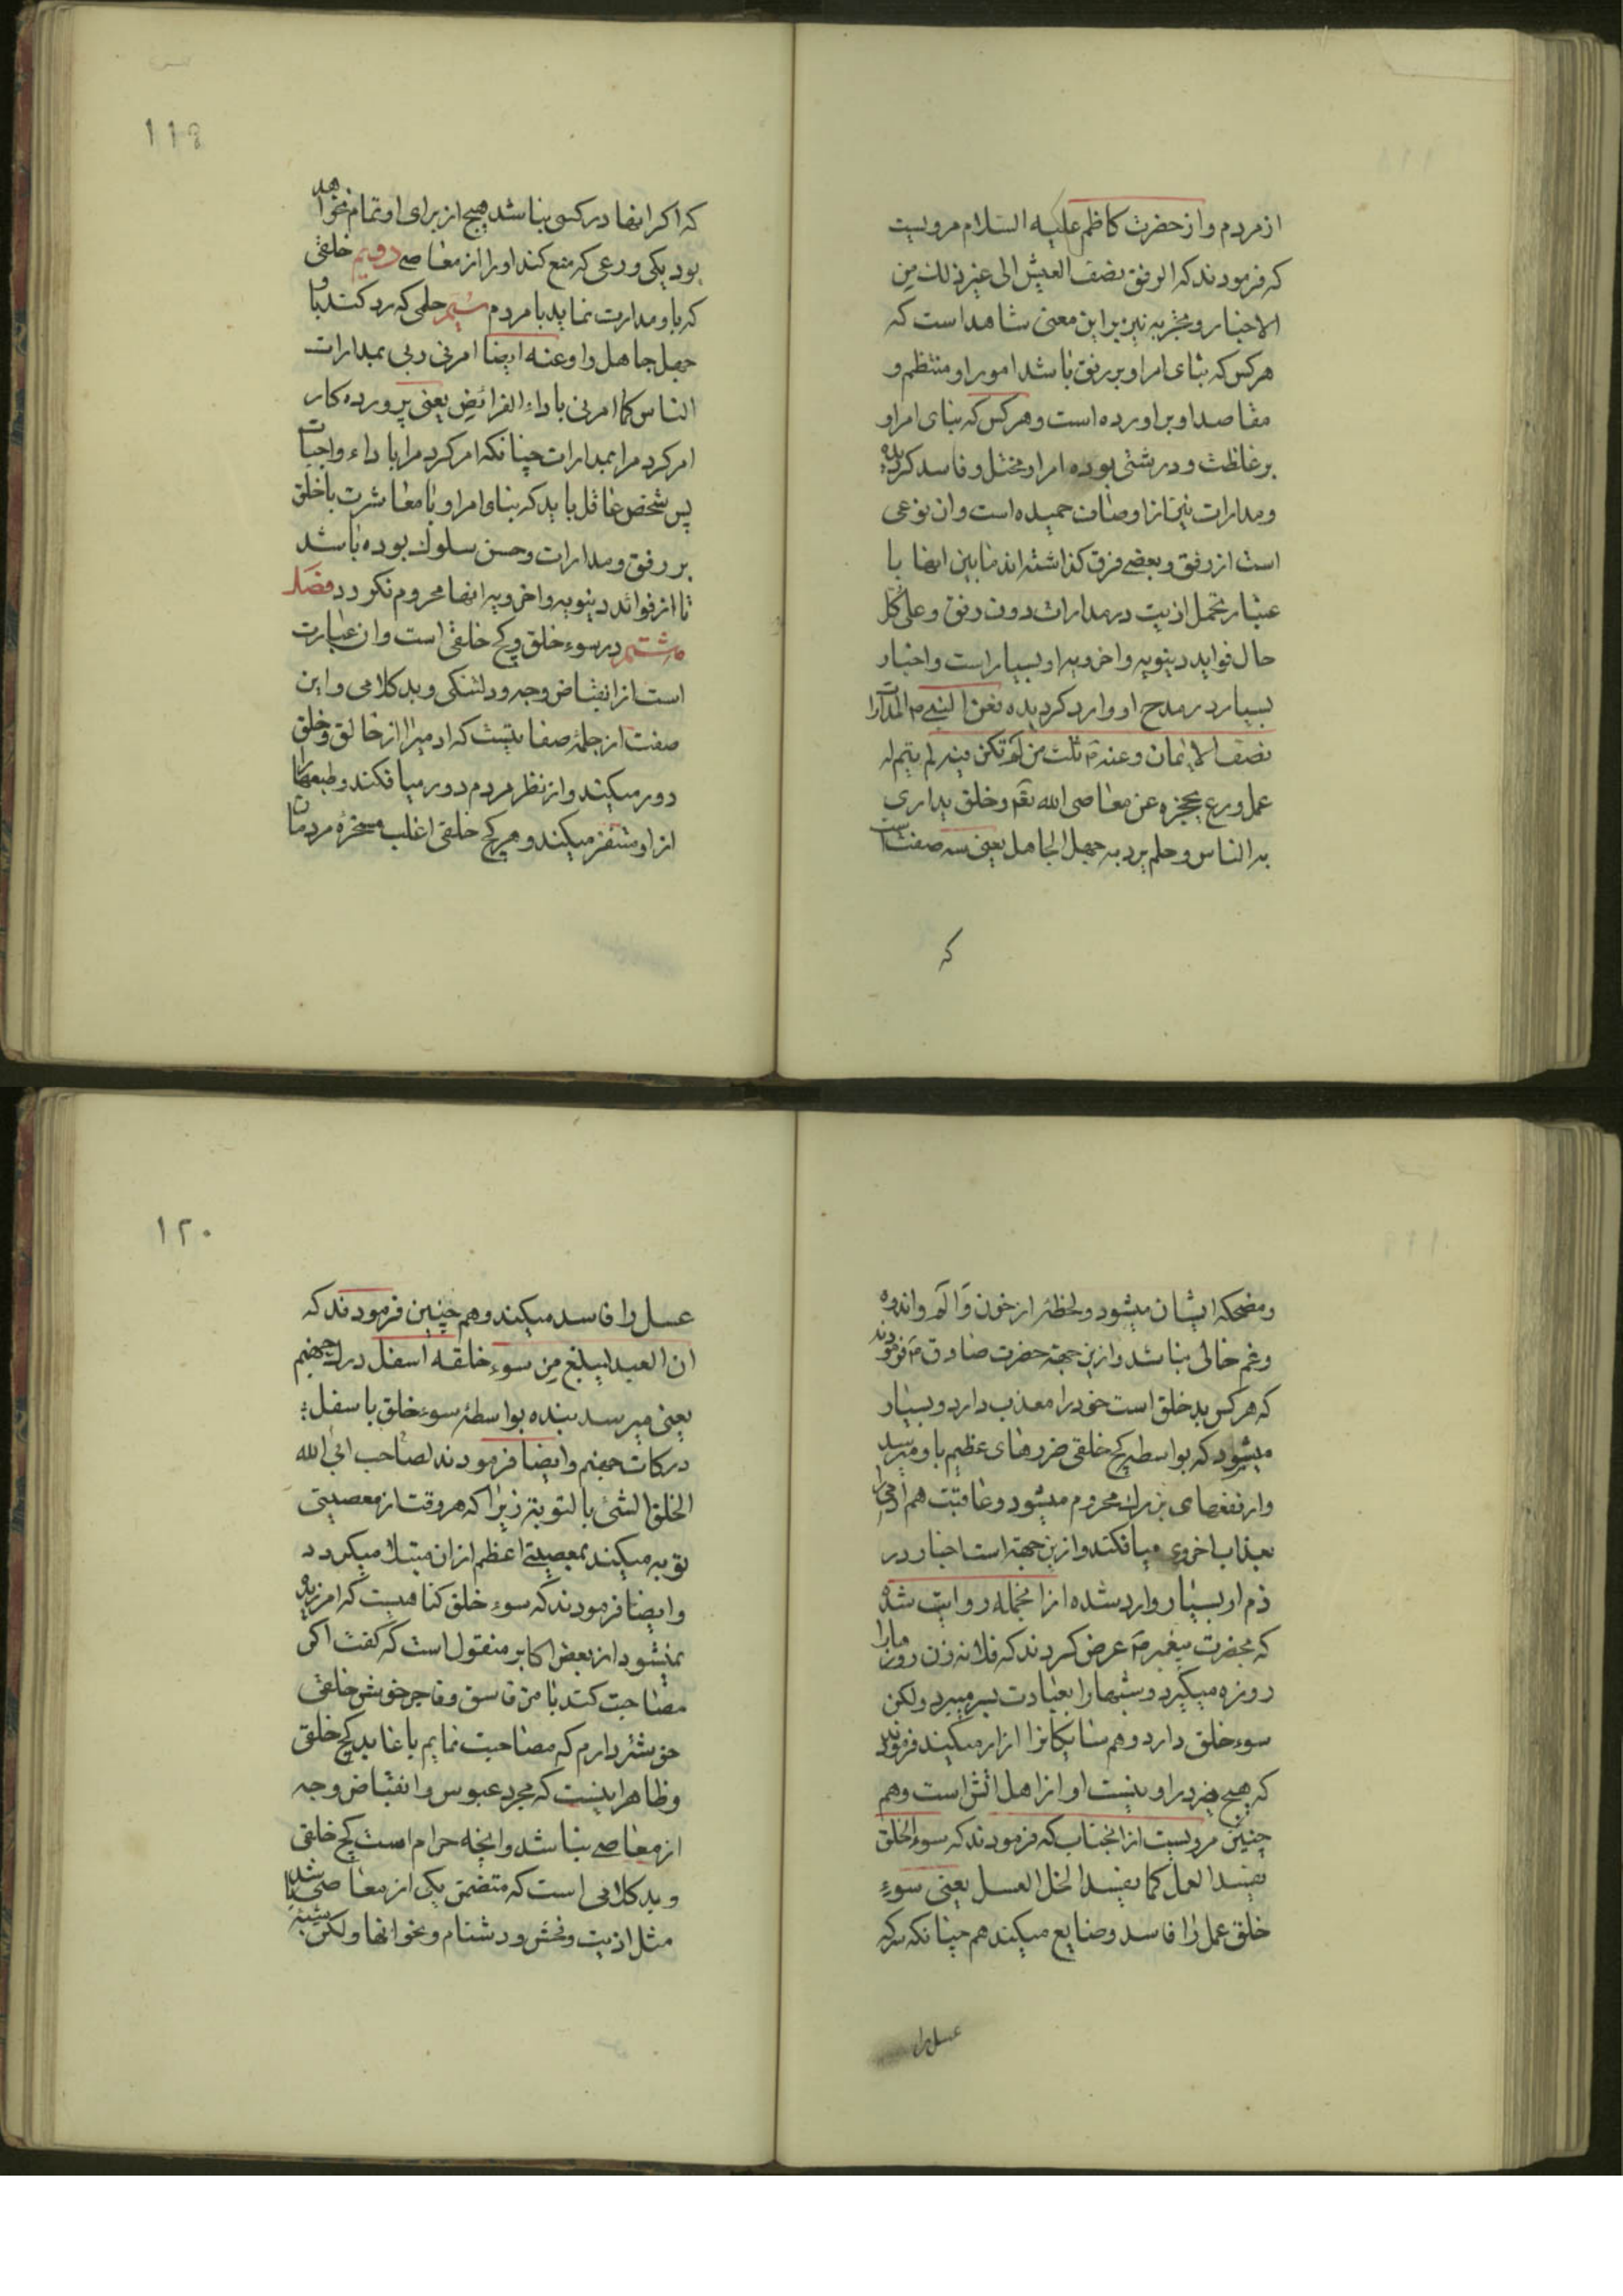 از مردم و از حضرت کاظم علیه السلام مرویست
که فرمودند که الرفق نصف العیش الی غیر ذلک من
الاخبار و تجربه نیز براین معنی شاهد است که
هر کس که بنای امر او بر رفق باشد امور او منتظم و
مقاصد او براورده است و هر کس که بنای امر او
بر غلظت و درشتی بوده امر او مختل و فاسد کردیده
و مدارات نیز از اوصاف حمیده است و ان نوعی
است از رفق و بعضی فرق کذاشته اند مابین انها با
عتبار تحمل اذیت در مدارات دون رفق و علی کل
حال فواید دینویه و اخرویه او بسیار است و اخبار
بسیار در مدح او وارد کردیده فعن النبی ص المدارات
نصف الایمان و عنه ص ثلث من لم تکن فیه لم یتم له
عمل ورع یحجزه عن معاصی الله تعم و خلق یداری
به الناس و حلم یرد به جهل الجاهل یعنی سه صفت است
که
۱۱۹
که اکر انها در کسی نباشد هیچ از برای او تمام نخواهد
بود یکی ورعی که منع کند او را از معاصی دویم خلقی
که باو مدارت نماید با مردم سیم حلمی که رد کند با و
جهل جاهل را و عنه ایضا امرنی ربی بمدارات
الناس کما امرنی باداء الفرائض یعنی پرورده کار
امر کرد مرا بمدارات چنانکه امر کرد مرا باداء واجبات
پس شخص عاقل باید که بناو امر او با معاشرت با خلق
بر رفق و مدارات و حسن سلوک بوده باشد
تا از فوائد دینویه و اخرویه انها محروم نکردد فصل
هشتم در سوء خلق و کج خلقی است و ان عبارت
است از انقباض وجه و دلتنکی و بد کلامی و این
صفت از جمله صفاتیست که ادمیرا از خالق و خلق
دور میکند و از نظر مردم دور میافکند و طبعها را
از او متنفر میکند و هر کج خلقی اغلب مسخرهٔ مردمان
و مضحکه ایشان میشود و لحظهٔ از حزن و الم و اندوه
و غم خالی نباشد و ازین جهة حضرت صادق ع فرمودند
که هر کس بد خلق است خود را معذب دارد و بسیار
میشود که بواسطه کج خلقی ضررهای عظیم باو میرسد
و از نفعهای بزرک محروم میشود و عاقبت هم ادمی را
بعذاب اخروی میافکند و ازین جهة است اخبار در
ذم او بسیار وارد شده از انجمله روایت شده
که بحضرت پیغمبر ص عرض کردند که فلانه زن روزها را
روزه میکیرد و شبها را بعبادت بسر میبرد ولکن
سوء خلق دارد و همسایکانرا ازار میکیند فرمودند
که هیچ خیر در او نیست او از اهل اتش است و هم
چنین مرویست از انجناب که فرمودند که سوء الخلق
یفسد العمل کما یفسد الخل العسل یعنی سوء
خلق عمل را فاسد و ضایع میکیند هم چنانکه سرکه
عسل را
۱۲۰
عسل را فاسد میکیند و هم چنین فرمودند که
ان العبد لیبلغ من سوء خلقه اسفل درک جهنم
یعنی میرسد بنده بواسطهٔ سوء خلق باسفل
درکات جهنم و ایضا فرمودند لصاحب ابی الله
الخلق الشئ بالتوبة زیرا که هر وقت از معصیتی
توبه میکیند بمعصیتی اعظم از ان مبتلا میکردد
و ایضا فرمودند که سوء خلق کناهیست که امرزیده
نمیشود از بعض اکابر منقول است که کفت اکر
مصاحبت کند با من فاسق و فاجر خوش خلقی
خوشتر دارم که مصاحبت نمایم با عابد کج خلق
و ظاهر اینست که مجرد عبوس و انقباض وجه
از معاصی نباشد و انچه حرام است کج خلقی
و بد کلامی است که متضمن یکی از معاصی باشد
مثل اذیت و فحش و دشنام و نحو انها ولکن